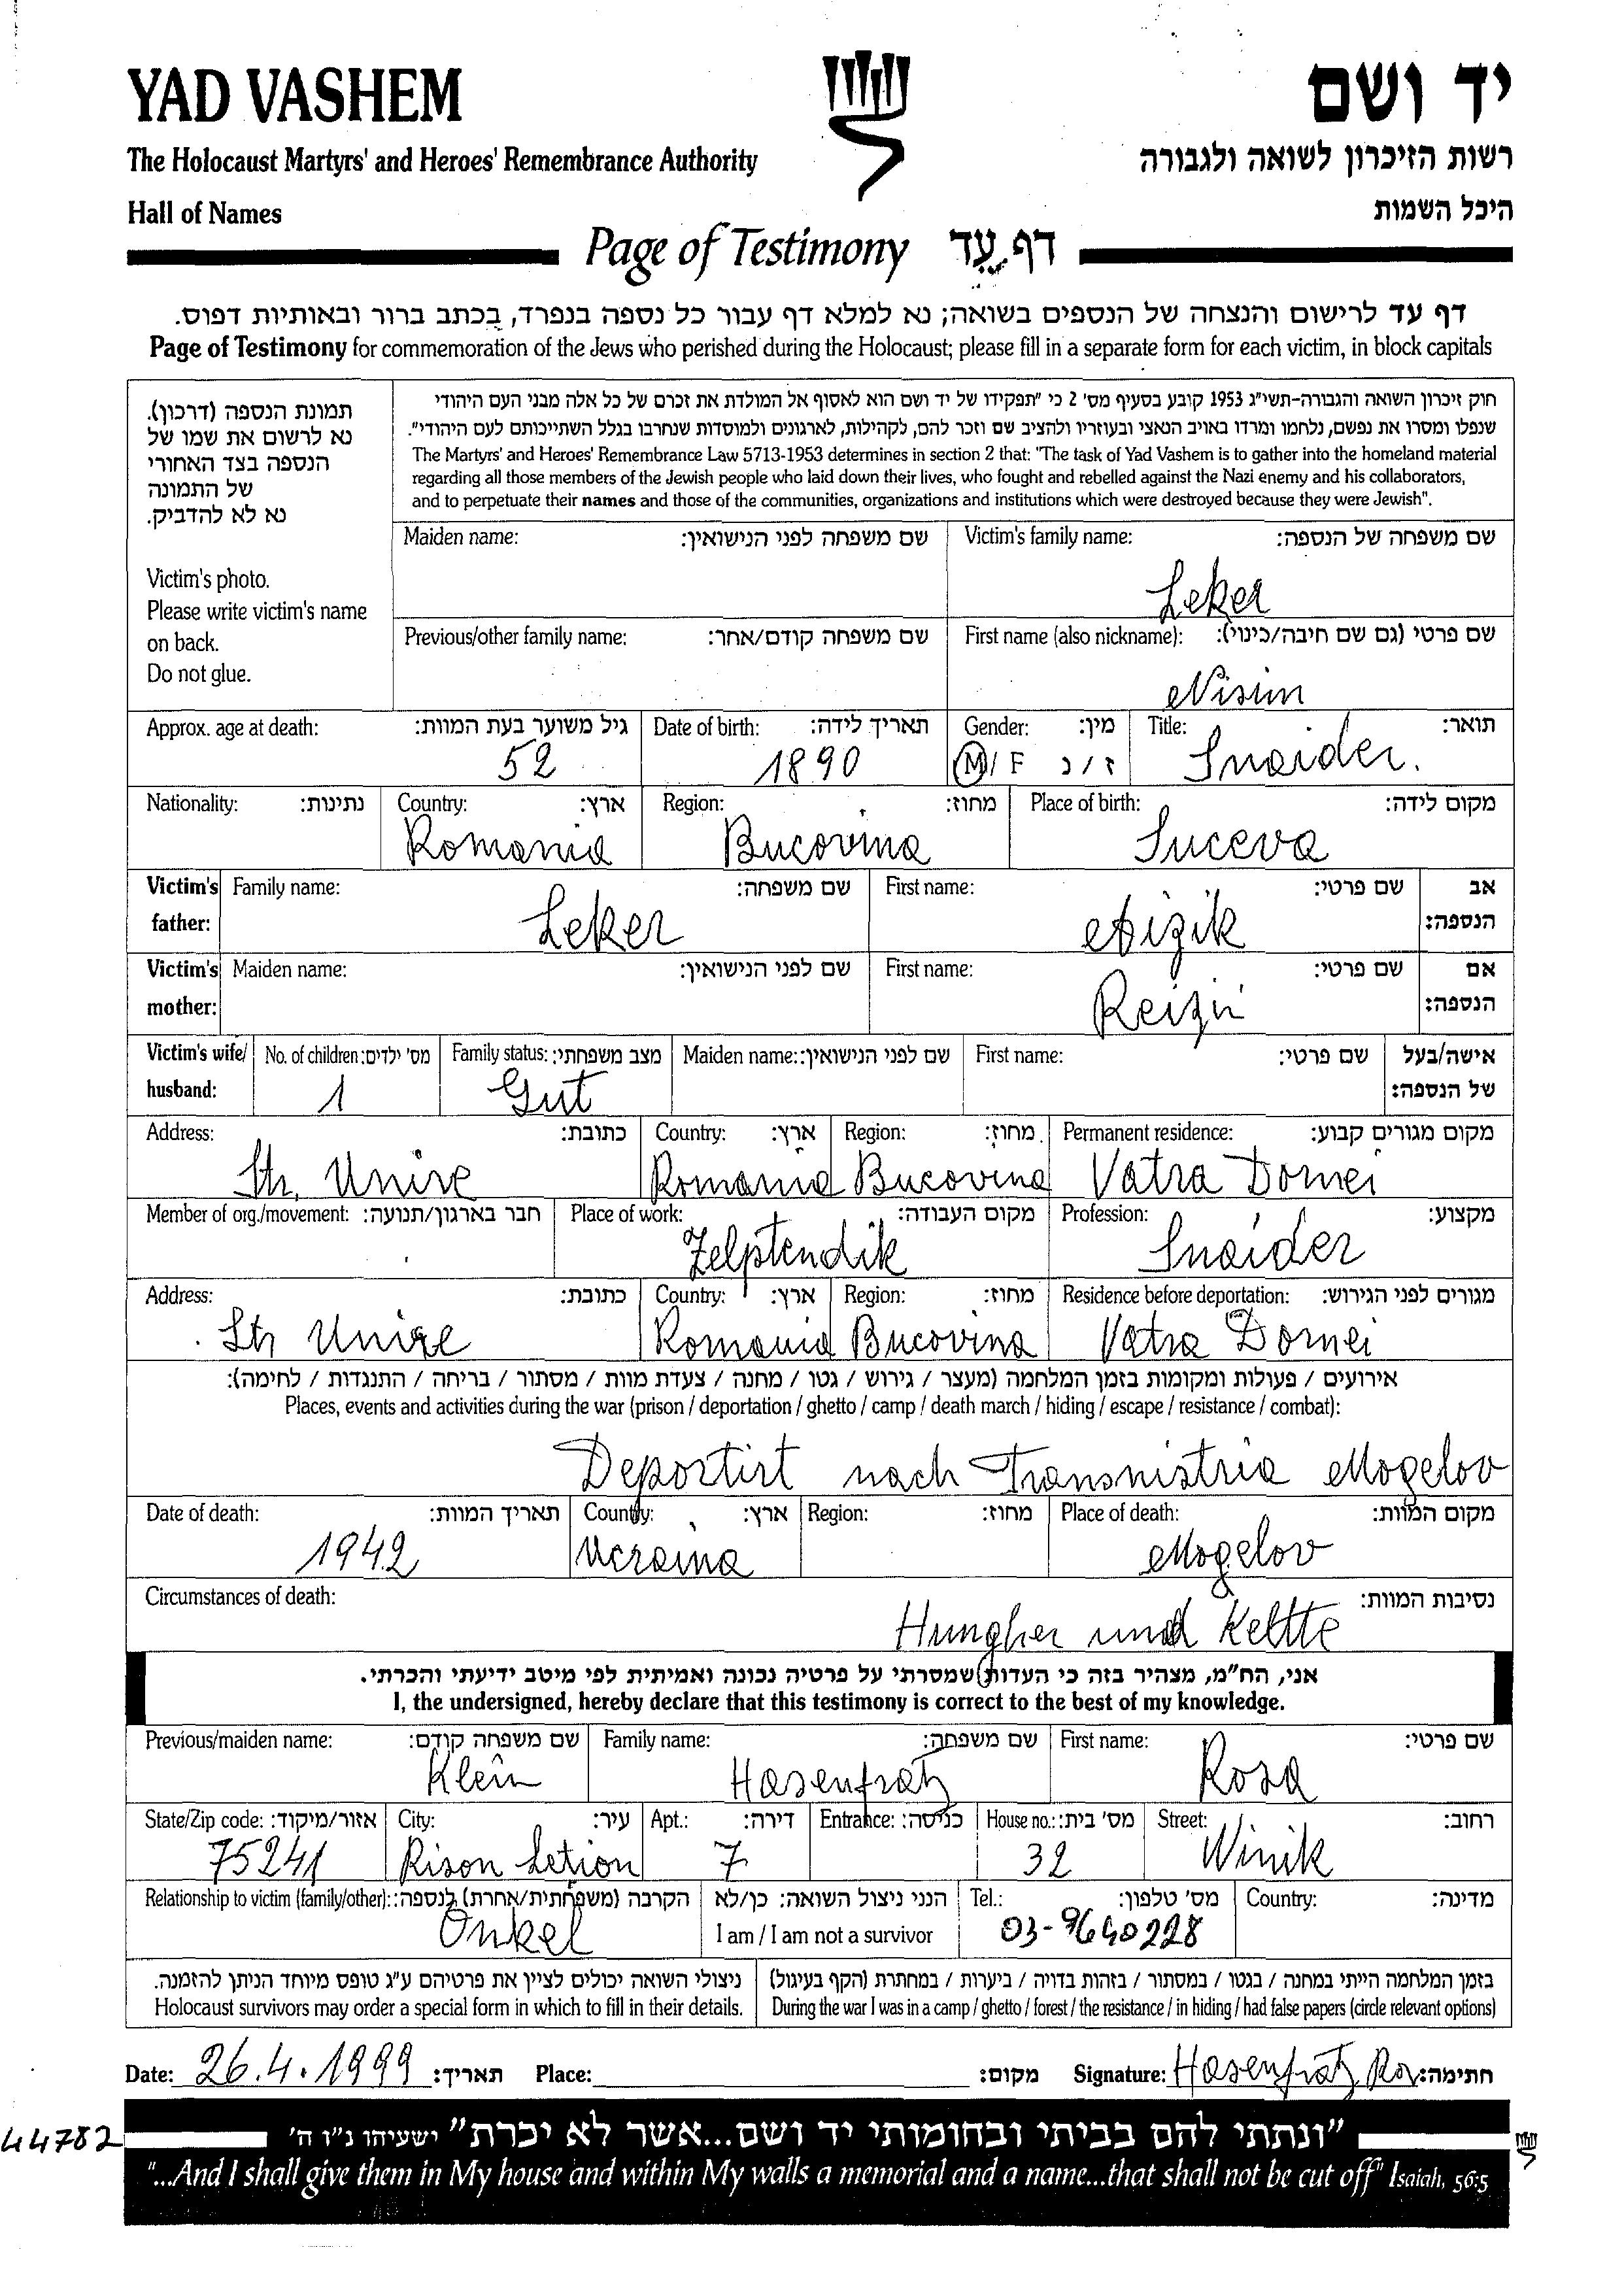 YAD VASHEM
יד ושם
The Holocaust Martyrs' and Heroes' Remembrance Authority
רשות הזיכרון לשואה ולגבורה
Hall of Names
היכל השמות
Page of Testimony דף עֵד
דף עד לרישום והנצחה של הנספים בשואה; נא למלא דף עבור כל נספה בנפרד, בכתב ברור ובאותיות דפוס.
Page of Testimony for commemoration of the Jews who perished during the Holocaust; please fill in a separate form for each victim, in block capitals
תמונת הנספה (דרכון).
נא לרשום את שמו של
הנספה בצד האחורי
של התמונה
נא לא להדביק.
Victim's photo.
Please write victim's name
on back.
Do not glue.
חוק זיכרון השואה והגבורה-תשי"ג 1953 קובע בסעיף מס' 2 כי "תפקידו של יד ושם הוא לאסוף אל המולדת את זכרם של כל אלה מבני העם היהודי
שנפלו ומסרו את נפשם, נלחמו ומרדו באויב הנאצי ובעוזריו ולהציב שם וזכר להם, לקהילות, לארגונים ולמוסדות שנחרבו בגלל השתייכותם לעם היהודי".
The Martyrs' and Heroes' Remembrance Law 5713-1953 determines in section 2 that: "The task of Yad Vashem is to gather into the homeland material
regarding all those members of the Jewish people who laid down their lives, who fought and rebelled against the Nazi enemy and his collaborators,
and to perpetuate their names and those of the communities, organizations and institutions which were destroyed because they were Jewish".
Maiden name: שם משפחה לפני הנישואין: Victim's family name: שם משפחה של הנספה:
Leker
Previous/other family name: שם משפחה קודם/אחר: First name (also nickname): שם פרטי (גם שם חיבה/כינוי):
Nisim
Approx. age at death: גיל משוער בעת המוות: Date of birth: תאריך לידה: Gender: מין: Title: תואר:
52 1890 M/F ז/נ Snaider.
Nationality: נתינות: Country: ארץ: Region: מחוז: Place of birth: מקום לידה:
Romania Bucovina Suceva
Victim's father: Family name: שם משפחה: First name: שם פרטי: אב הנספה:
Leker Aizik
Victim's mother: Maiden name: שם לפני הנישואין: First name: שם פרטי: אם הנספה:
Reizi
Victim's wife/ husband: No. of children: מס' ילדים: Family status: מצב משפחתי: Maiden name: שם לפני הנישואין: First name: שם פרטי: אישה/בעל של הנספה:
1 Gut
Address: כתובת: Country: ארץ: Region: מחוז: Permanent residence: מקום מגורים קבוע:
Str. Unire Romania Bucovina Vatra Dornei
Member of org./movement: חבר בארגון/תנועה: Place of work: מקום העבודה: Profession: מקצוע:
Zelptendik Snaider
Address: כתובת: Country: ארץ: Region: מחוז: Residence before deportation: מגורים לפני הגירוש:
Str Unire Romania Bucovina Vatra Dornei
אירועים / פעולות ומקומות בזמן המלחמה (מעצר / גירוש / גטו / מחנה / צעדת מוות / מסתור / בריחה / התנגדות / לחימה):
Places, events and activities during the war (prison / deportation / ghetto / camp / death march / hiding / escape / resistance / combat):
Deportirt nach Transnistria Mogelov
Date of death: תאריך המוות: Country: ארץ: Region: מחוז: Place of death: מקום המוות:
1942 Ucraina Mogelov
Circumstances of death: נסיבות המוות:
Hungher und Keltte
אני, הח"מ, מצהיר בזה כי העדות שמסרתי על פרטיה נכונה ואמיתית לפי מיטב ידיעתי והכרתי.
I, the undersigned, hereby declare that this testimony is correct to the best of my knowledge.
Previous/maiden name: שם משפחה קודם: Family name: שם משפחה: First name: שם פרטי:
Klein Hasenfratz Rosa
State/Zip code: אזור/מיקוד: City: עיר: Apt.: דירה: Entrance: כניסה: House no.: מס' בית: Street: רחוב:
75241 Rison Letion 7 32 Winik
Relationship to victim (family/other): הקרבה (משפחתית/אחרת) לנספה: הנני ניצול השואה: כן/לא Tel.: מס' טלפון: Country: מדינה:
Onkel I am / I am not a survivor 03-9640228
ניצולי השואה יכולים לציין את פרטיהם ע"ג טופס מיוחד הניתן להזמנה.
Holocaust survivors may order a special form in which to fill in their details.
בזמן המלחמה הייתי במחנה / בגטו / במסתור / בזהות בדויה / ביערות / במחתרת (הקף בעיגול)
During the war I was in a camp / ghetto / forest / the resistance / in hiding / had false papers (circle relevant options)
Date: 26.4.1999 תאריך: Place: מקום: Signature: Hasenfratz Ro חתימה:
44782
"ונתתי להם בביתי ובחומותי יד ושם...אשר לא יכרת" ישעיהו נ"ו ה'
"...And I shall give them in My house and within My walls a memorial and a name...that shall not be cut off" Isaiah, 56:5